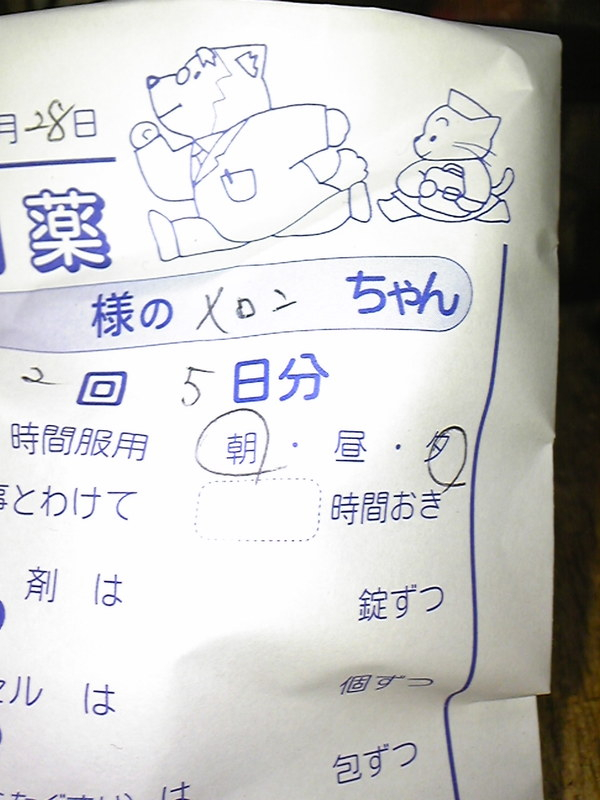 月28日
薬
様の メロン ちゃん
2 回 5 日分
時間服用 朝・昼・夕
事とわけて 時間おき
剤 は 錠ずつ
セル は 個ずつ
包ずつ
は